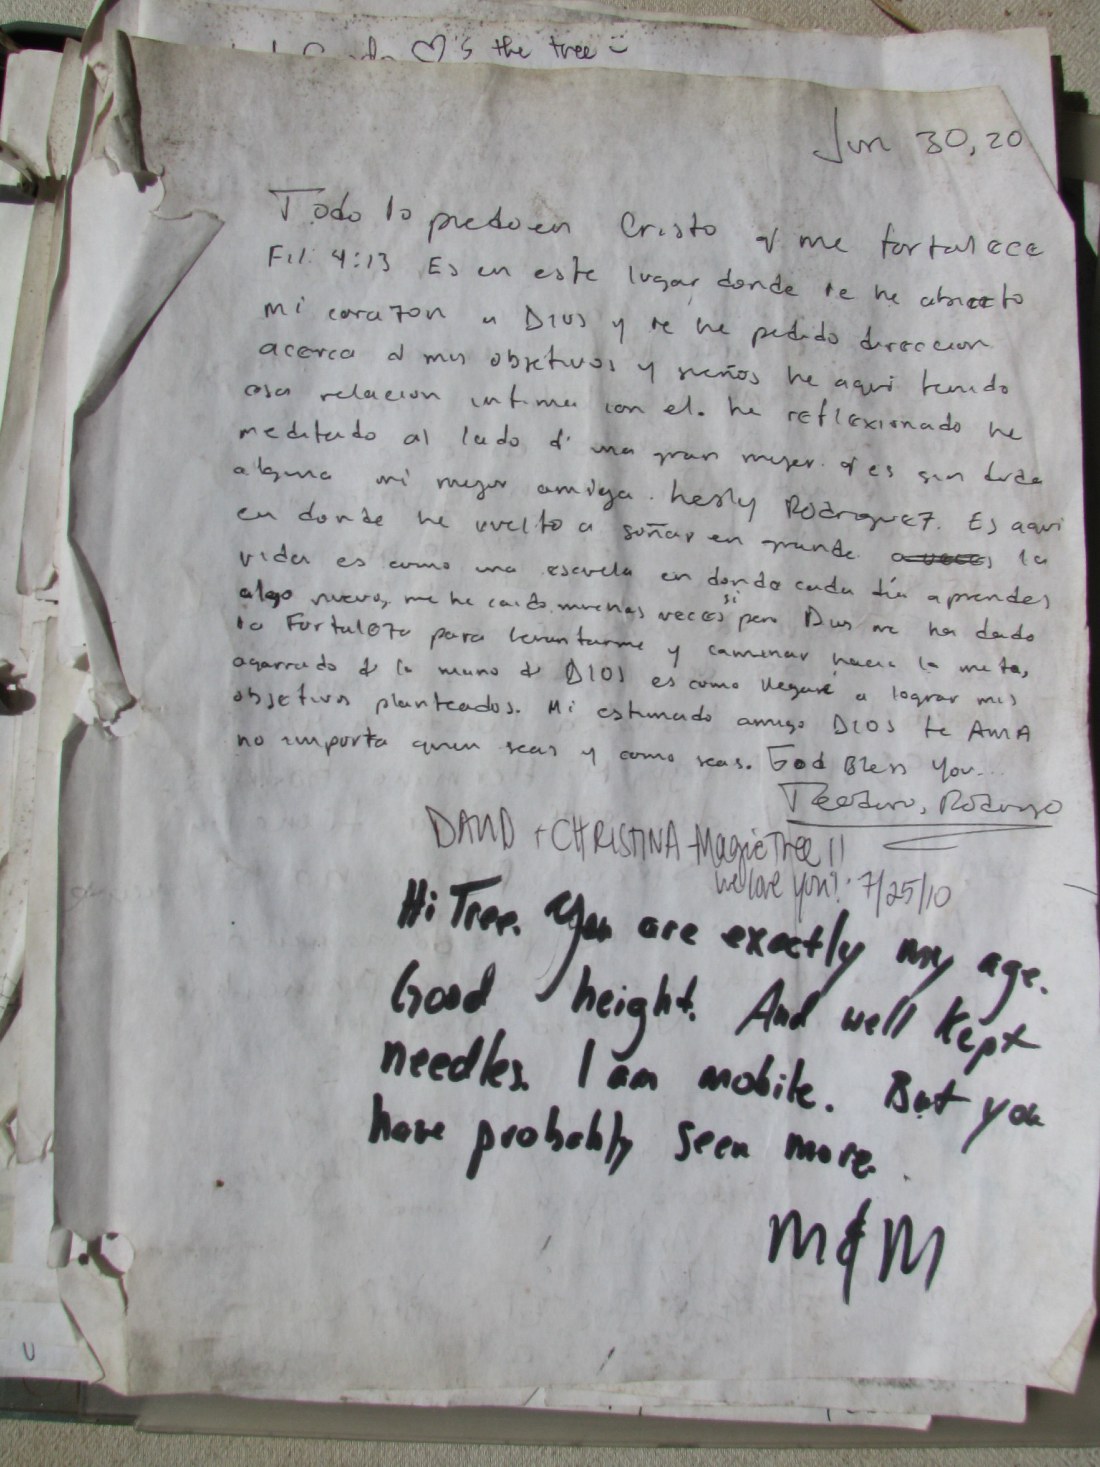 ♡'s the tree
Jun 30, 20
Todo lo puedo en Cristo q me fortalece
Fil. 4:13 Es en este lugar donde le he abierto
mi corazon a Dios y le he pedido direccion
acerca d mis objetivos y sueños he aqui tenido
esa relacion intima con el. he reflexionado he
meditado al lado d' una gran mujer. q es sin duda
alguna mi mejor amiga. hesly Rodriguez. Es aqui
en donde he vuelto a soñar en grande a veces la
vida es como una escuela en donde cada día aprendes
algo nuevo, me he caido muchas veces si pero Dios me ha dado
la Fortaleza para levantarme y caminar hacia la meta,
agarrado d la mano d DIOS es como llegaré a lograr mis
objetivos planteados. Mi estimado amigo DIOS te AMA
no importa quien seas y como seas. God Bless You...
Teodoro, Rodrigo
DAVID + CHRISTINA - Magic Tree!!
we love you! 7/25/10
Hi Tree. You are exactly my age.
Good height. And well kept
needles. I am mobile. But you
have probably seen more.
M&M
U